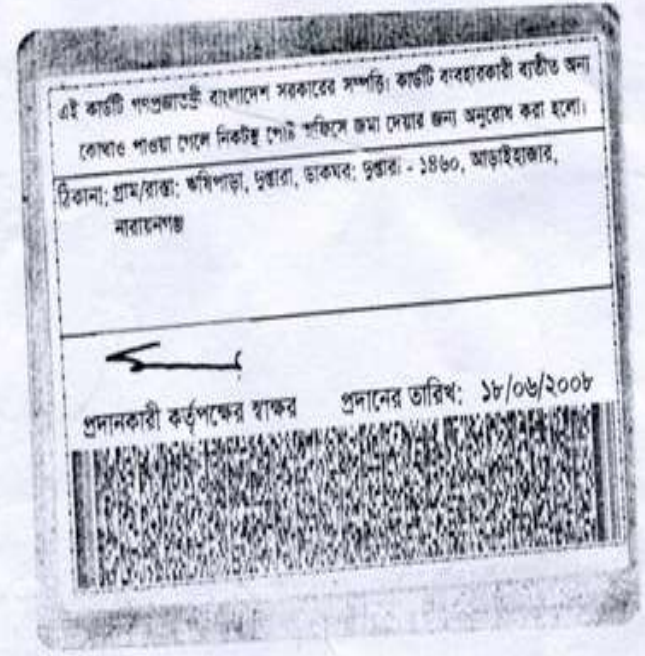 এই কার্ডটি গণপ্রজাতন্ত্রী বাংলাদেশ সরকারের সম্পত্তি। কার্ডটি ব্যবহারকারী ব্যতীত অন্য
কোথাও পাওয়া গেলে নিকটস্থ পোষ্ট অফিসে জমা দেয়ার জন্য অনুরোধ করা হলো।
ঠিকানা: গ্রাম/রাস্তা: ঋষিপাড়া, দুপ্তারা, ডাকঘর: দুপ্তারা - ১৪৬০, আড়াইহাজার,
নারায়নগঞ্জ
প্রদানকারী কর্তৃপক্ষের স্বাক্ষর প্রদানের তারিখ: ১৮/০৬/২০০৮